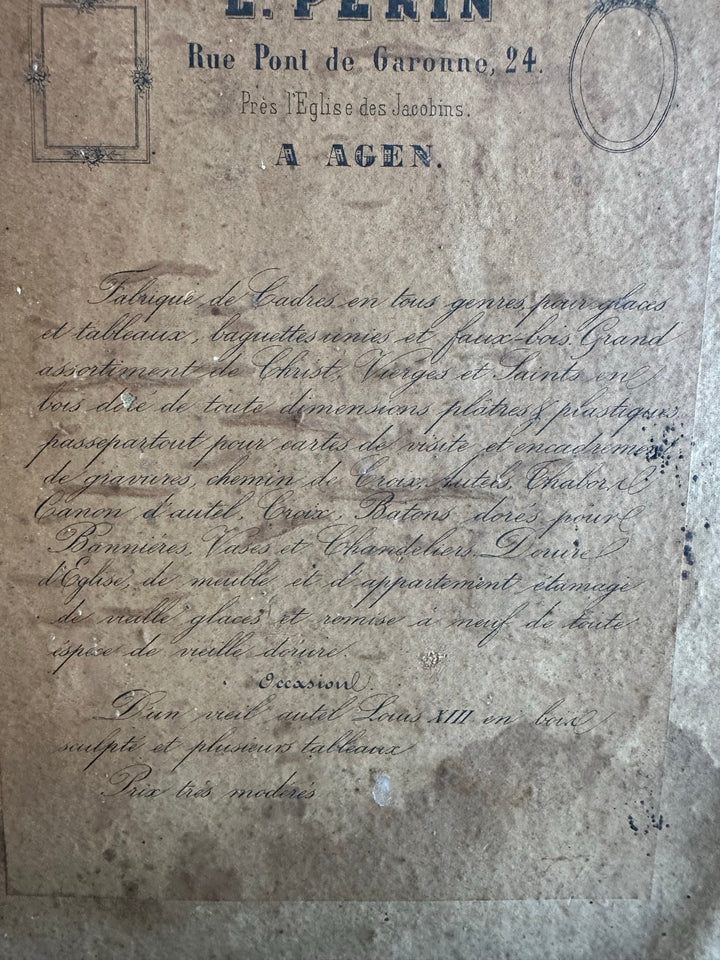 E. PERIN
Rue Pont de Garonne, 24.
Près l'Eglise des Jacobins.
A AGEN.
Fabrique de Cadres en tous genres pour glaces
et tableaux, baguettes unies et faux-bois. Grand
assortiment de Christ, Vierges et Saints en
bois doré de toute dimensions plâtres & plastiques,
passepartout pour cartes de visite et encadrement
de gravures, chemin de Croix, Autels, Thabor, et
Canon d'autel, Croix, Batons dorés pour
Bannières, Vases et Chandeliers. Dorure
d'Eglise, de meuble et d'appartement étamage
de vieille glaces et remise à neuf de toute
éspèce de vieille dorure.
Occasion.
D'un vieil autel Louis XIII en bois
sculpté et plusieurs tableaux
Prix très modérés